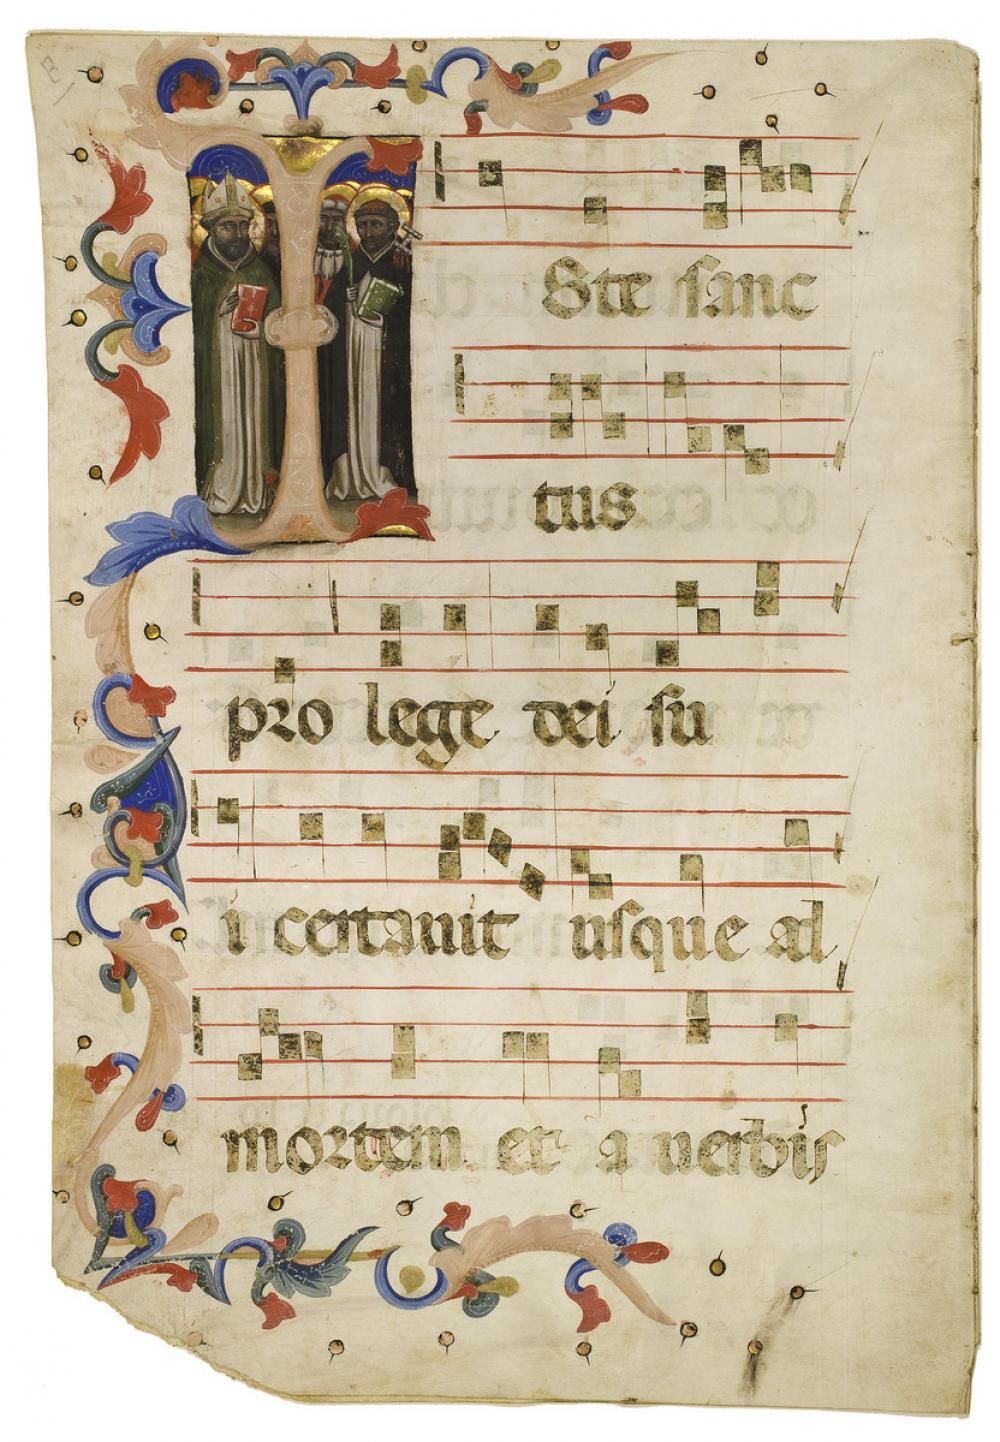 ISte sanc
tus
pro lege dei su
i certauit usque ad
mortem et a uerbis